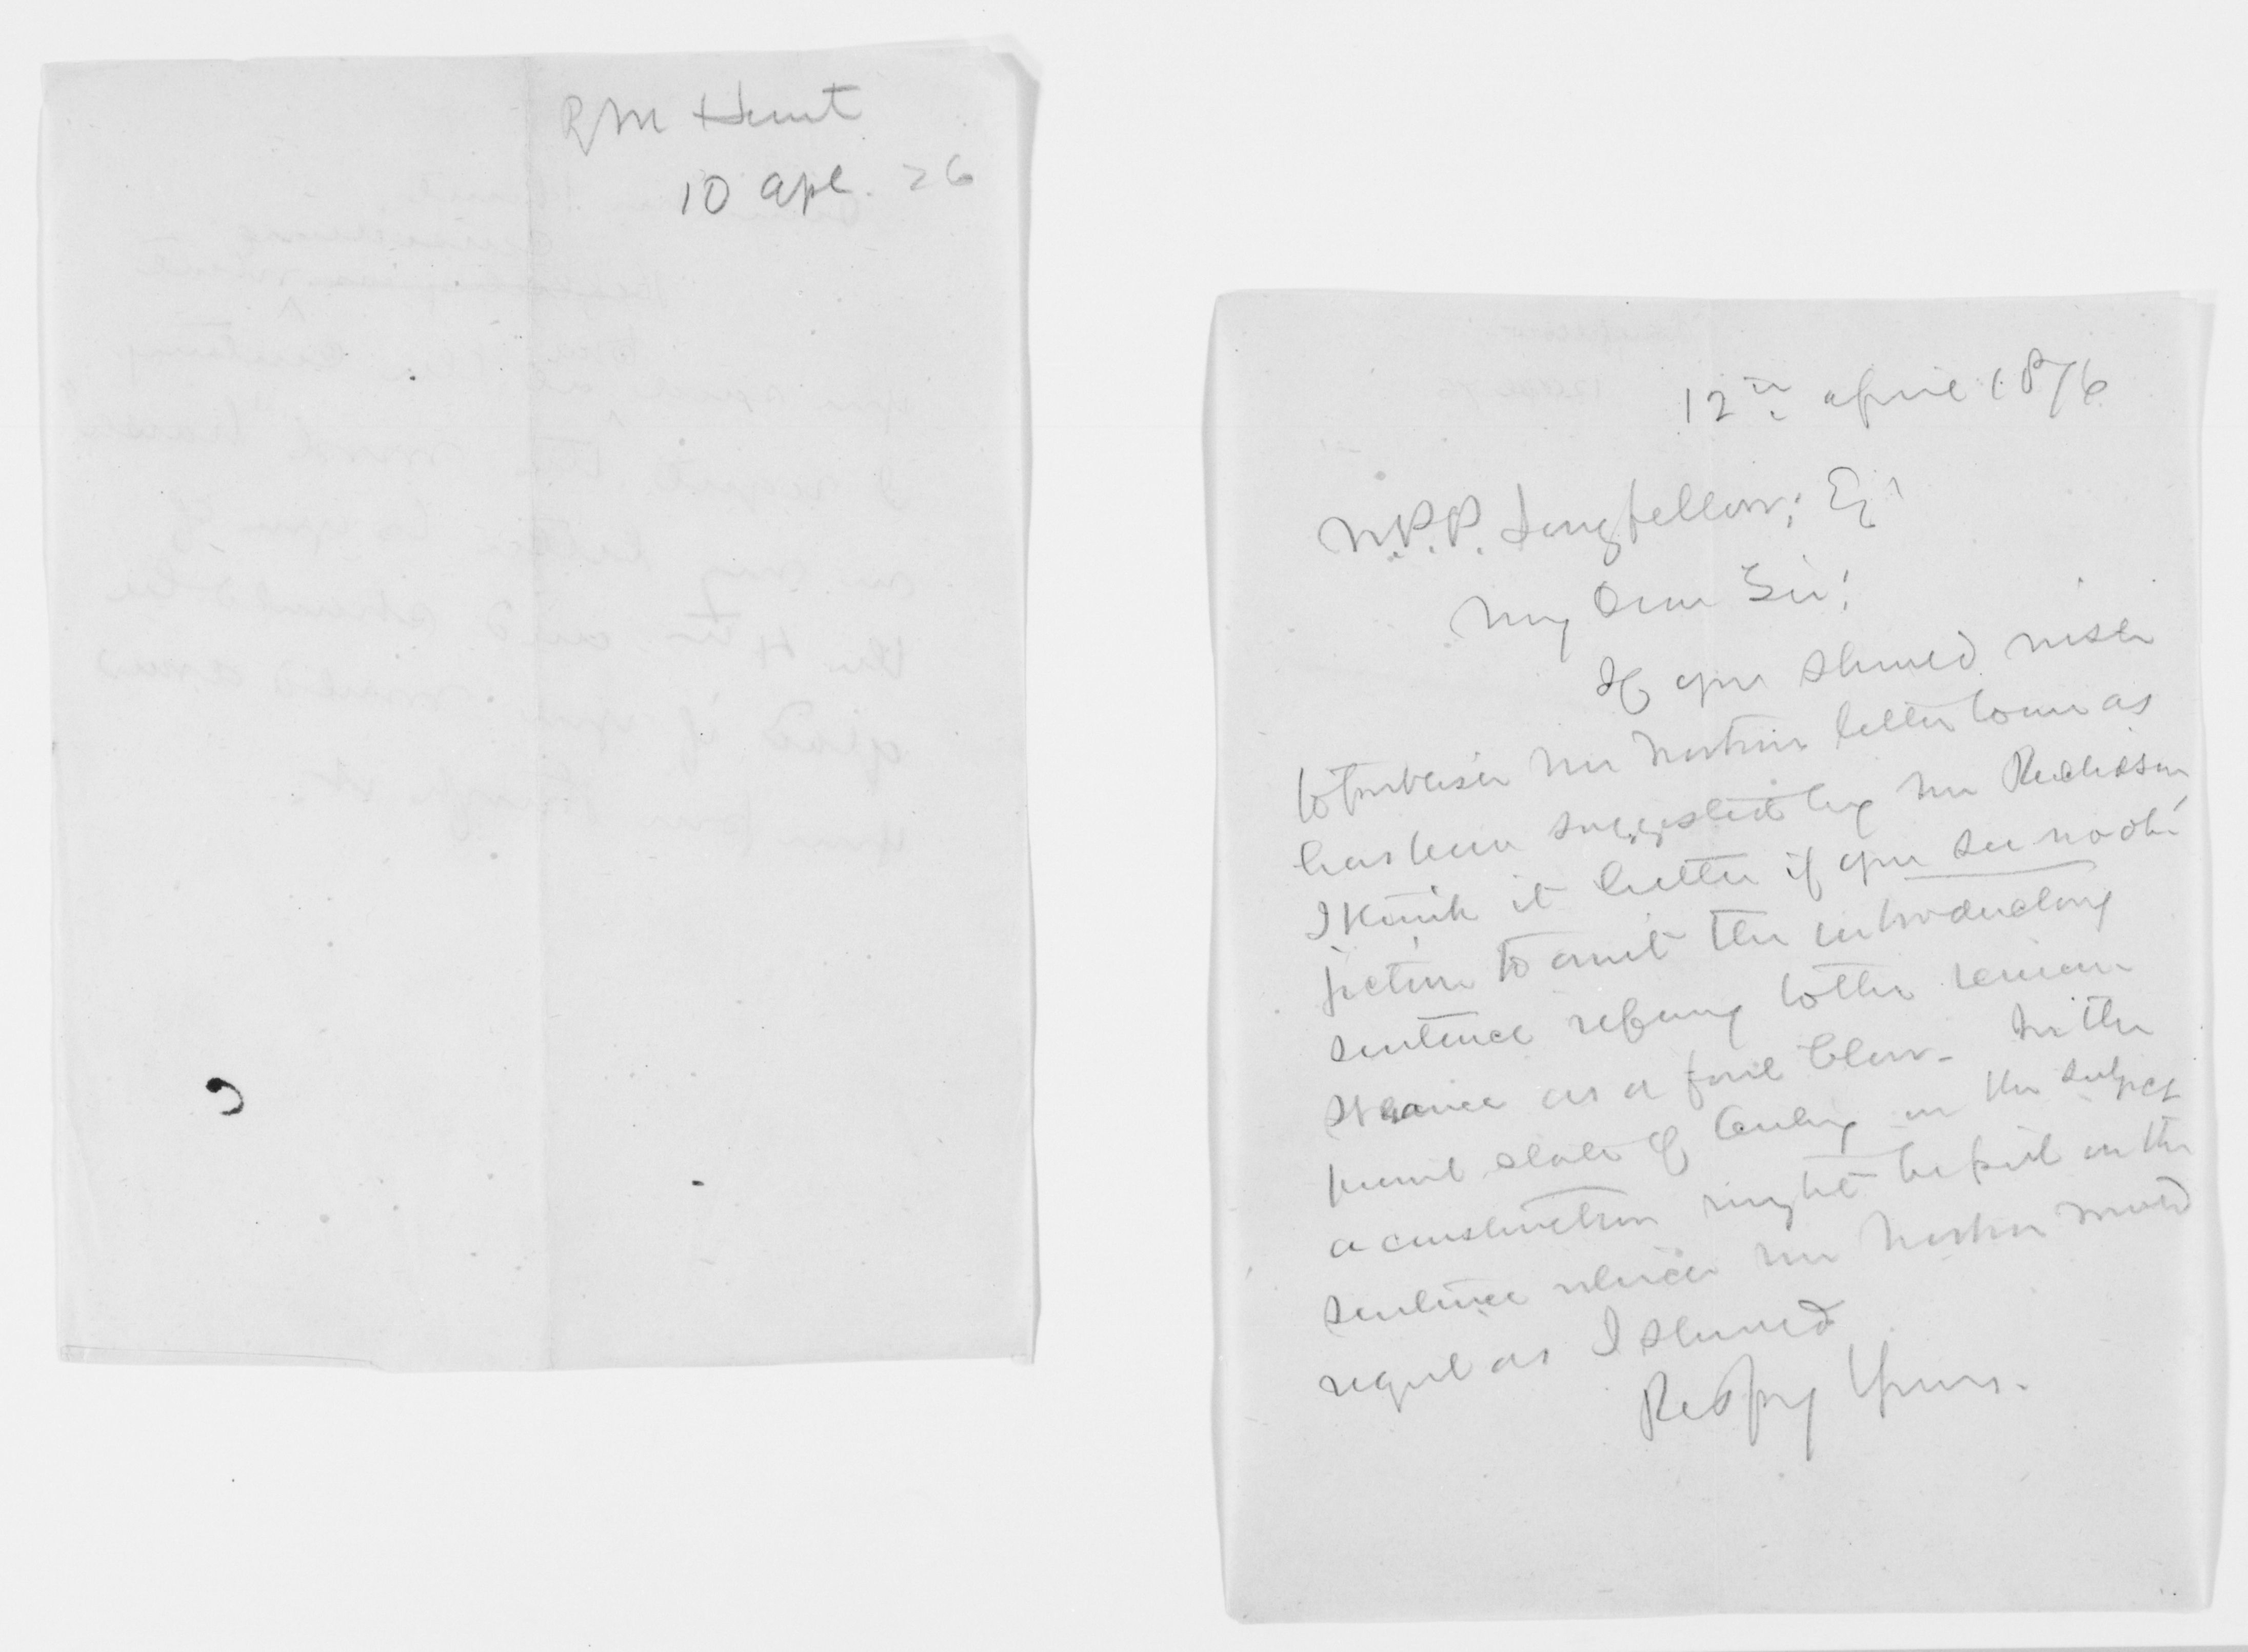 R M Hunt
10 Apl. 76
12th April 1876
W.P.P. Longfellow; Eq
My Dear Sir!
If you should wish
to publish Mr Norton's letter to me as
has been suggested by Mr Richardson
I think it better if you see no ob-
jection to omit the introductory
sentence refering to the remon-
strance as a foul blow. In the
present state of feeling on the subject
a construction might be put on the
sentence which Mr Norton would
regret as I should
Respy Yours.